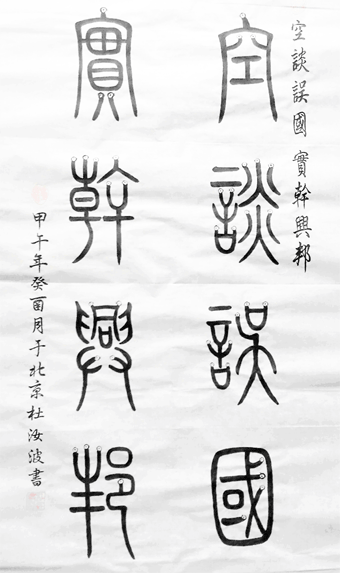 空談誤國實幹興邦
空談誤國
實幹興邦
甲午年癸酉月于北京杜汝波書